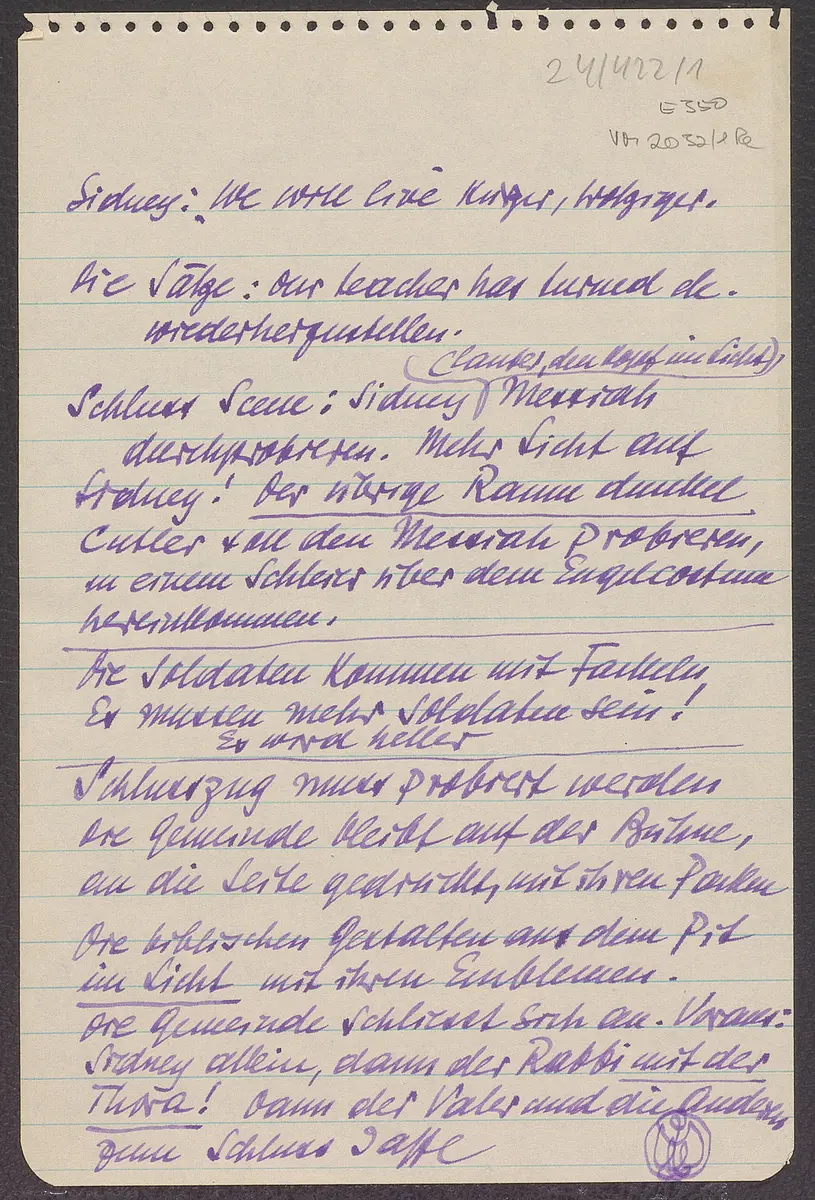 24/422/1
E 350
VM 2032/1 Re
Sidney: „We will live kürzer, trotziger.
Die Sätze: our teacher has turned etc.
wiederherzustellen.
(lauter, den Kopf im Licht)
Schluss Scene: Sidney Messiah
durchprobieren. Mehr Licht auf
Sidney! Der übrige Raum dunkel
Cutler soll den Messiah probieren,
in einem Schleier über dem Engelcostum
hereinkommen.
Die Soldaten kommen mit Fackeln
Es mussen mehr Soldaten sein!
Es wird heller
Schlusszug muss probiert werden
Die Gemeinde bleibt auf der Bühne,
an die Seite gedrückt, mit ihren Packen
Die biblischen Gestalten aus dem Pit
im Licht mit ihren Emblemen.
Die Gemeinde schliesst sich an. Voraus:
Sidney allein, dann der Rabbi mit der
Thora! Dann der Vater und die Anderen
zum Schluss Jaffe